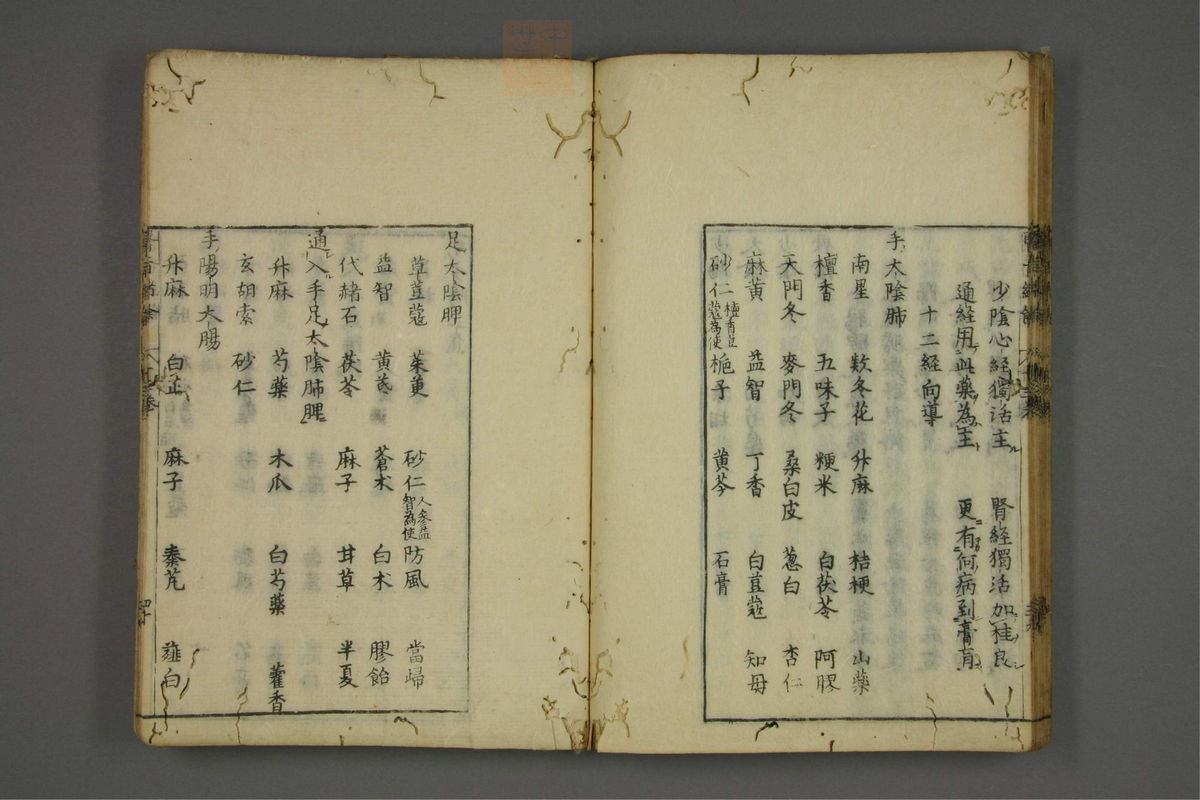 少陰心經獨活主 腎經獨活加桂良
通經用此藥為主 更有何病到膏肓
十二経向導
手太陰肺
南星 欵冬花 升麻 桔梗 山藥
檀香 五味子 粳米 白茯苓 阿膠
天門冬 麥門冬 桑白皮 葱白 杏仁
麻黄 益智 丁香 白荳蔻 知母
砂仁 檀香豆蔻為使 梔子 黄芩 石膏
足太陰脾
草荳蔻 茱萸 砂仁 人參益智為使 防風 當歸
益智 黄芪 蒼朮 白朮 膠飴
代赭石 茯苓 麻子 甘草 半夏
通入手足太陰肺脾
升麻 芍藥 木瓜 白芍藥 藿香
玄胡索 砂仁
手陽明大腸
升麻 白芷 麻子 秦艽 薤白